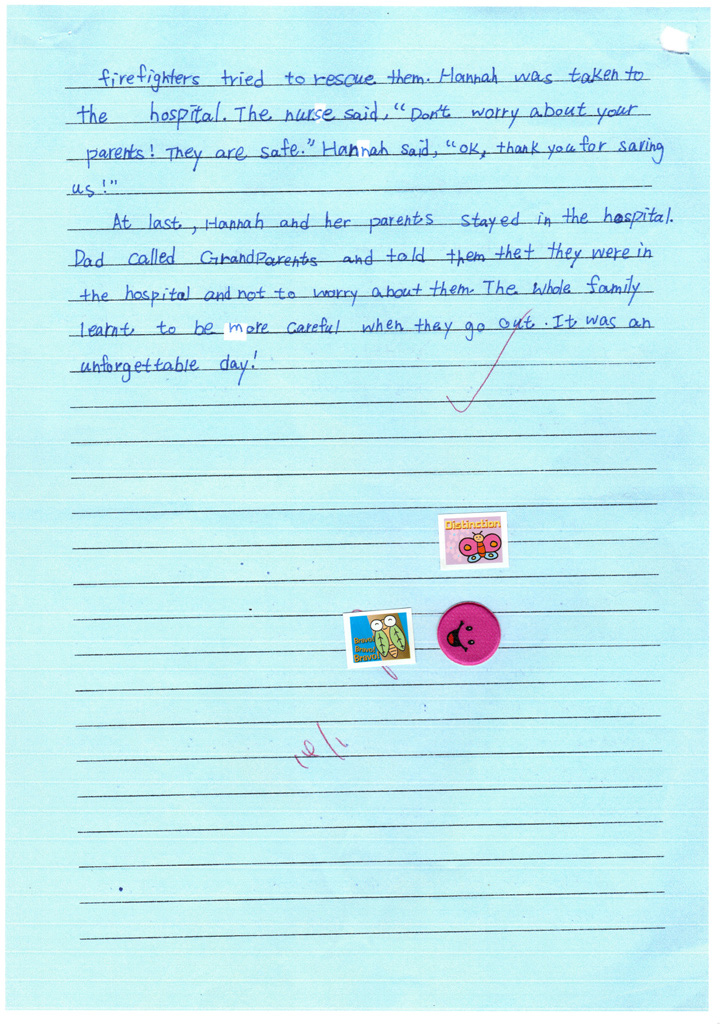 firefighters tried to rescue them. Hannah was taken to
the hospital. The nurse said, "Don't worry about your
parents! They are safe." Hannah said, "OK, thank you for saving
us!"
At last, Hannah and her parents stayed in the hospital.
Dad called GrandParents and told them thet they were in
the hospital and not to worry about them. The whole family
learnt to be more careful when they go out. It was an
unforgettable day!
Distinction
Bravo!
Bravo!
Bravo!